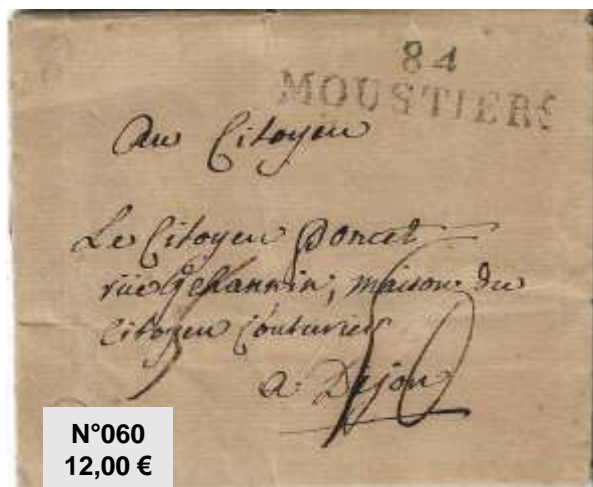 84
MOUSTIERS
Au Citoyen
Le Citoyen Poncet
rüe Jehannin, maison du
Citoyen Couturier
a Dijon
N°060
12,00 €